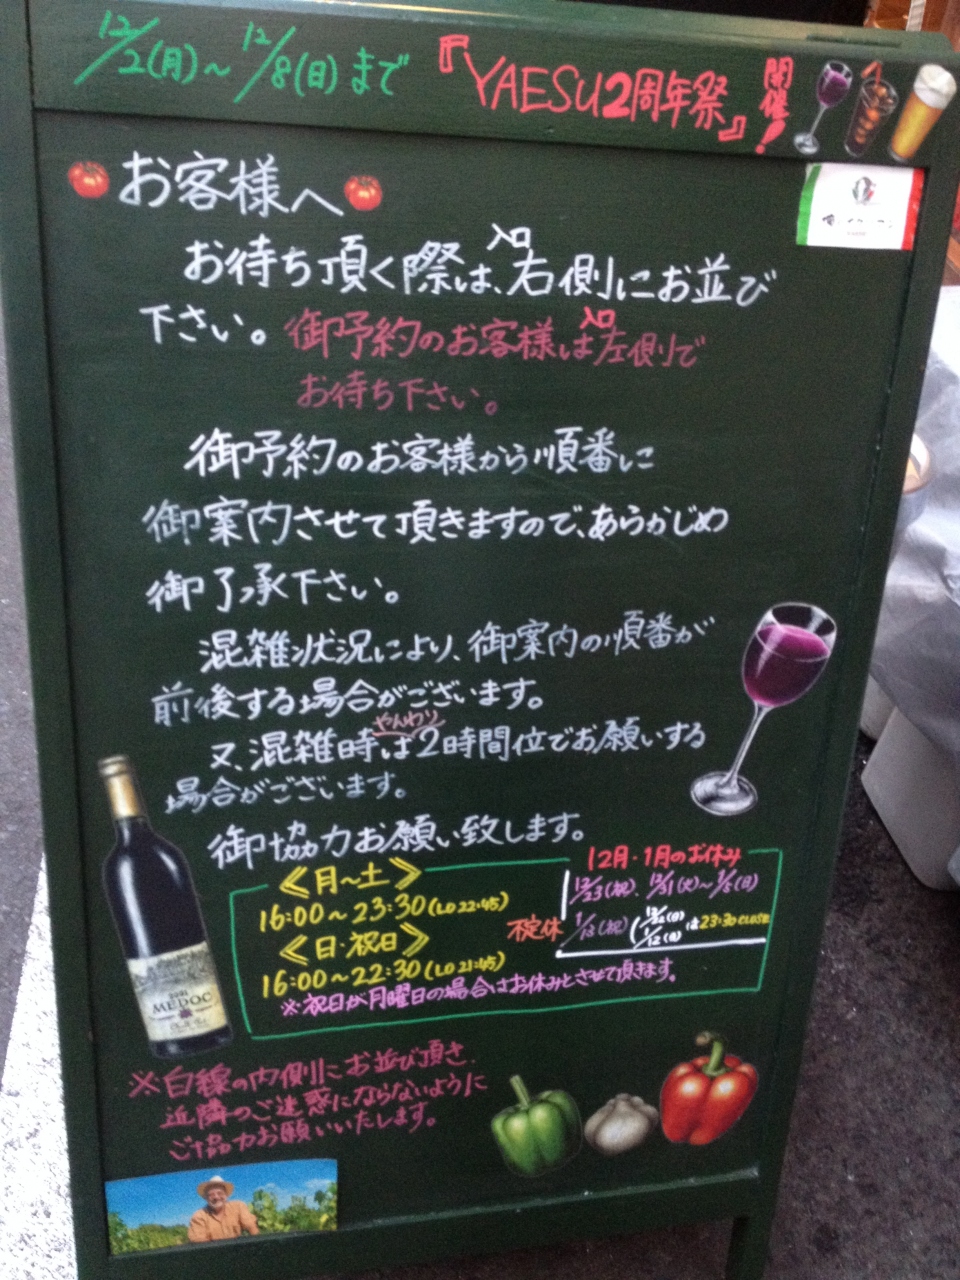 12/2(月)〜12/8(日)まで 『YAESU2周年祭』開催!
お客様へ
お待ち頂く際は、入口右側にお並び
下さい。御予約のお客様は入口左側で
お待ち下さい。
御予約のお客様から順番に
御案内させて頂きますので、あらかじめ
御了承下さい。
混雑状況により、御案内の順番が
前後する場合がございます。
やんわり
又、混雑時は2時間位でお願いする
場合がございます。
御協力お願い致します。
≪月〜土≫
16:00〜23:30(LO 22:45)
≪日・祝日≫
16:00〜22:30(LO 21:45)
※祝日が月曜日の場合はお休みとさせて頂きます。
12月・1月のお休み
12/23(祝)、12/31(火)〜1/5(日)
不定休 1/13(祝) (12/22(日) 1/12(日) は23:30 CLOSE
※白線の内側にお並び頂き
近隣のご迷惑にならないように
ご協力お願いいたします。
MEDOC